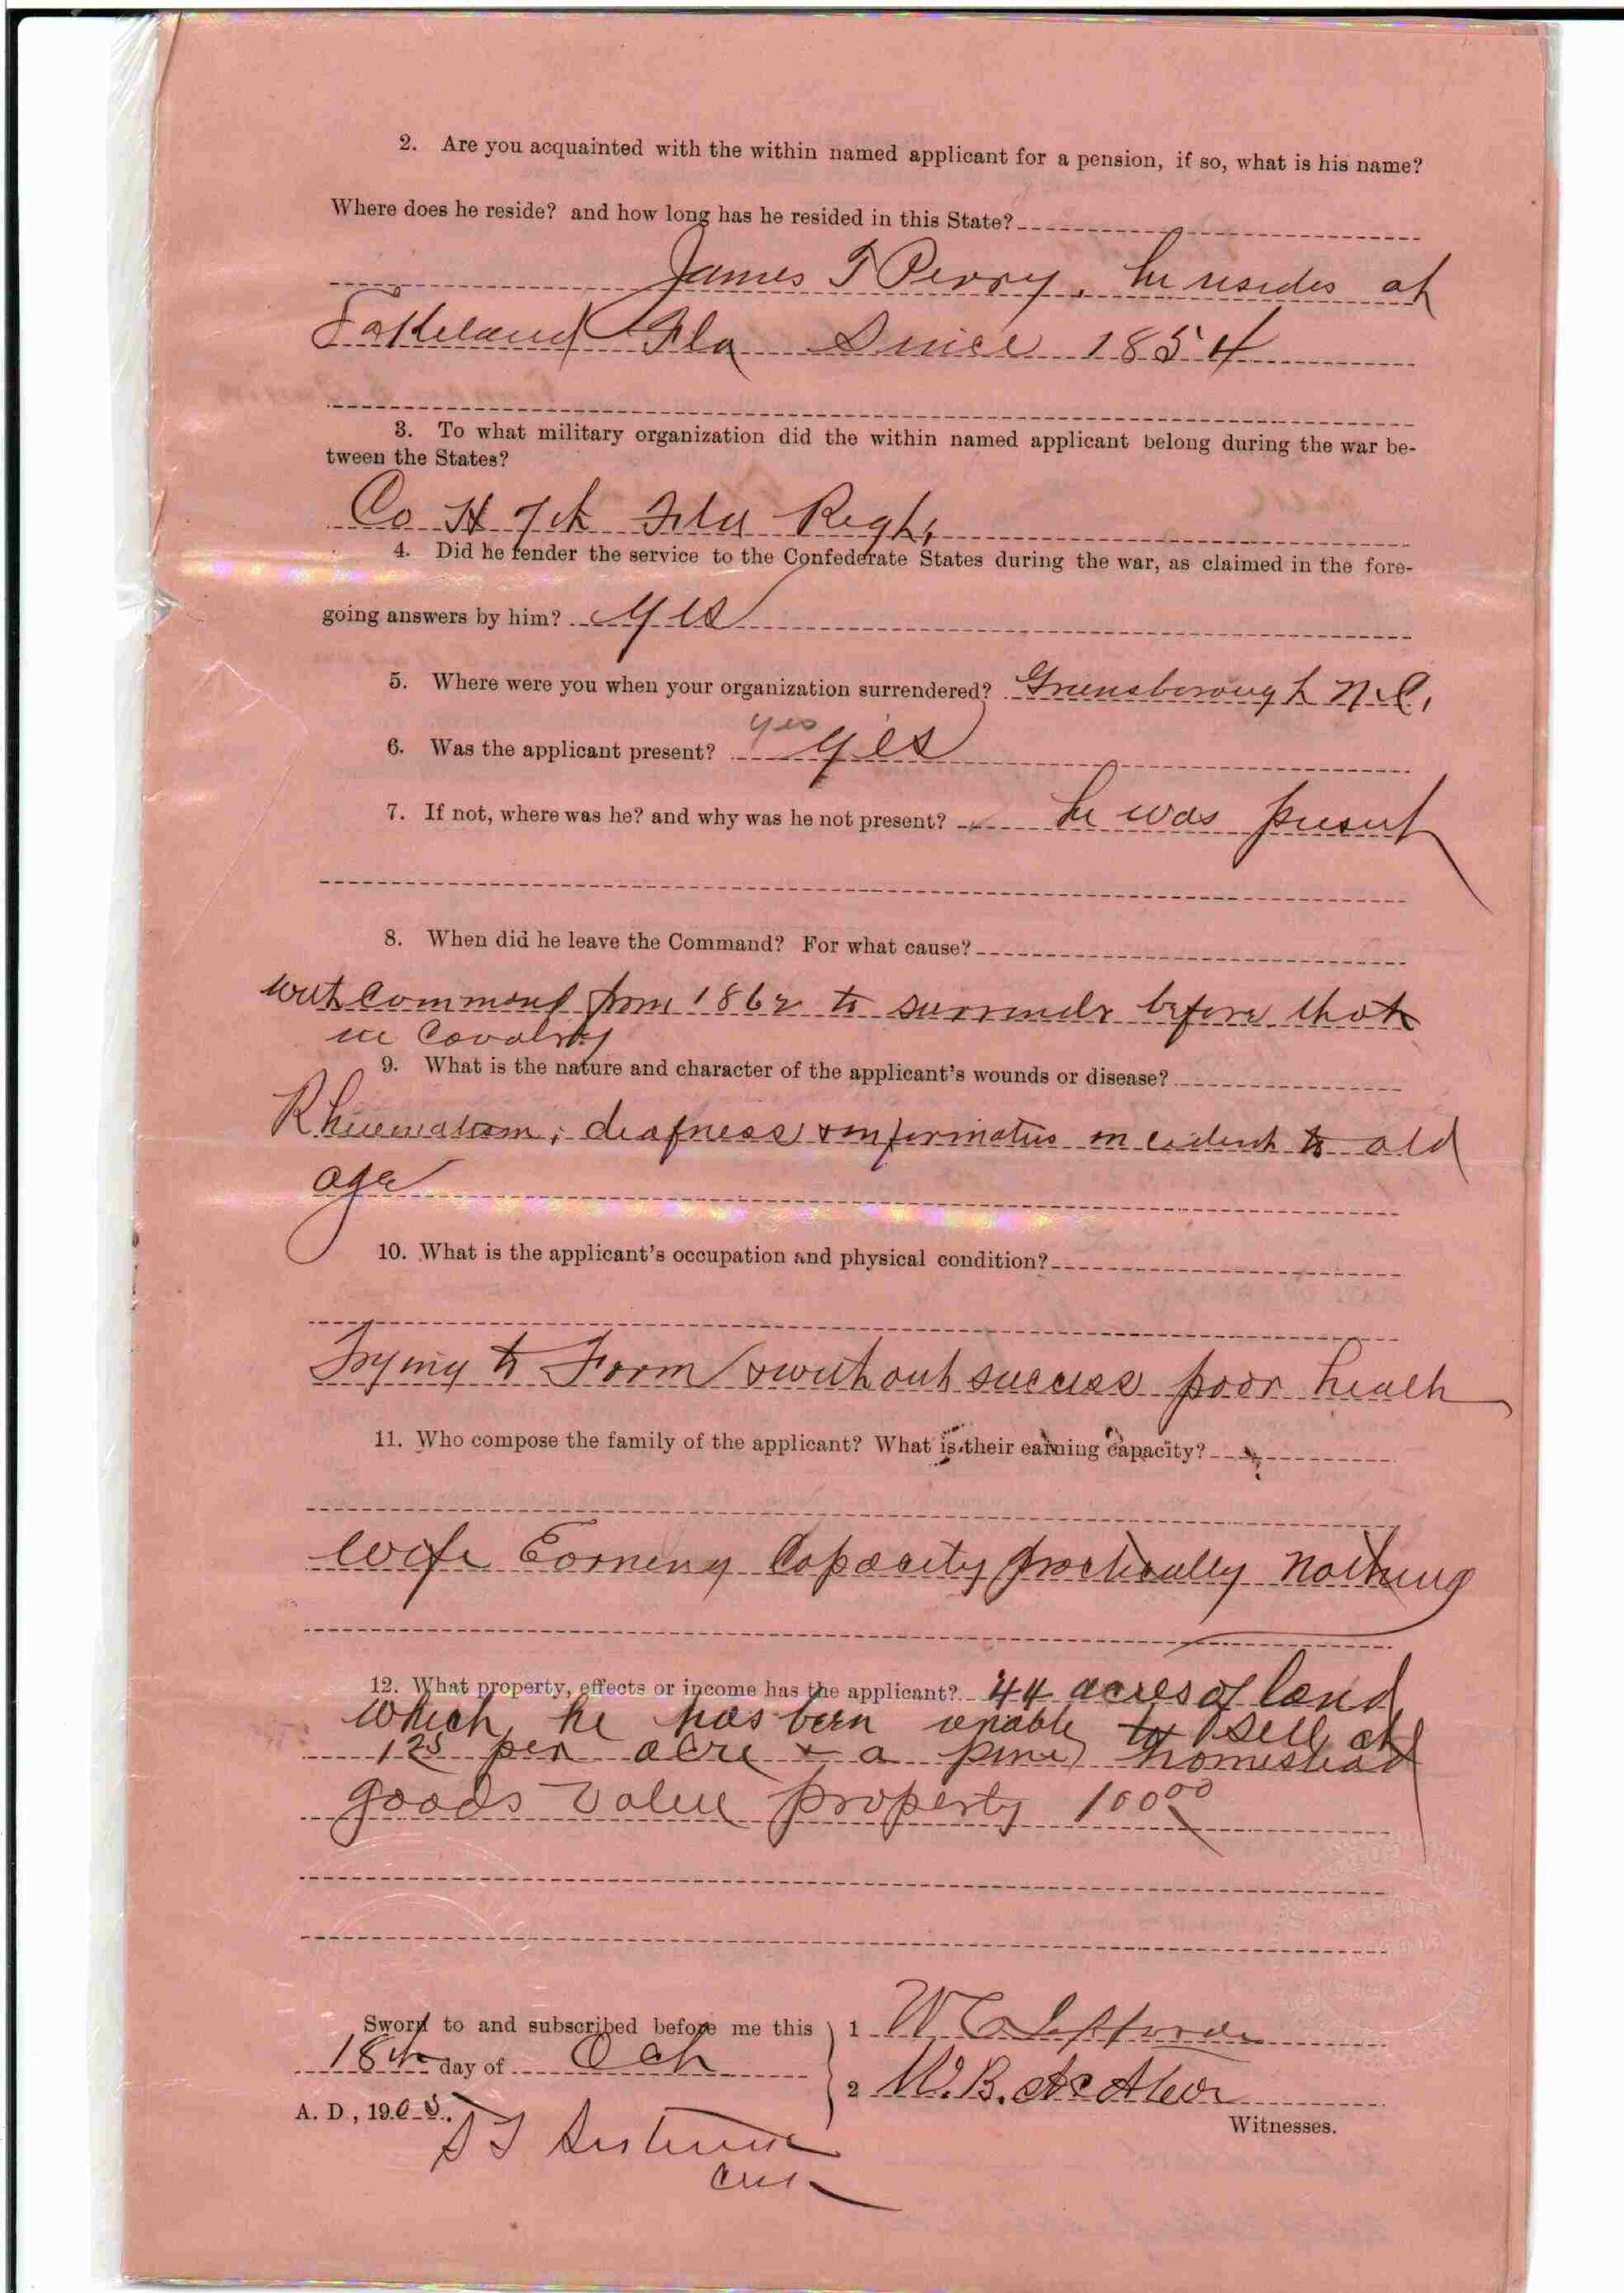 2. Are you acquainted with the within named applicant for a pension, if so, what is his name?
Where does he reside? and how long has he resided in this State?
James T Perry, he resides at
Lakeland Fla Since 1854
3. To what military organization did the within named applicant belong during the war be-
tween the States?
Co H 7th Fla Regt,
4. Did he render the service to the Confederate States during the war, as claimed in the fore-
going answers by him? yes
5. Where were you when your organization surrendered? Greensborough N.C,
yes
6. Was the applicant present? yes
7. If not, where was he? and why was he not present? he was present
8. When did he leave the Command? For what cause?
with command from 1862 to surrender before that
in Cavalry
9. What is the nature and character of the applicant's wounds or disease?
Rheumatism; deafness & infirmities incident to old
age
10. What is the applicant's occupation and physical condition?
Trying to Farm & without success poor health
11. Who compose the family of the applicant? What is their earning capacity?
Wife Earning Capacity practically nothing
12. What property, effects or income has the applicant? 44 acres of land
which he has been unable to sell at
1 25 per acre & a homestead
goods value property 100 00
Sworn to and subscribed before me this 1 W
18th day of Oct
2 W. B.
A. D., 190
Witnesses.
Clk